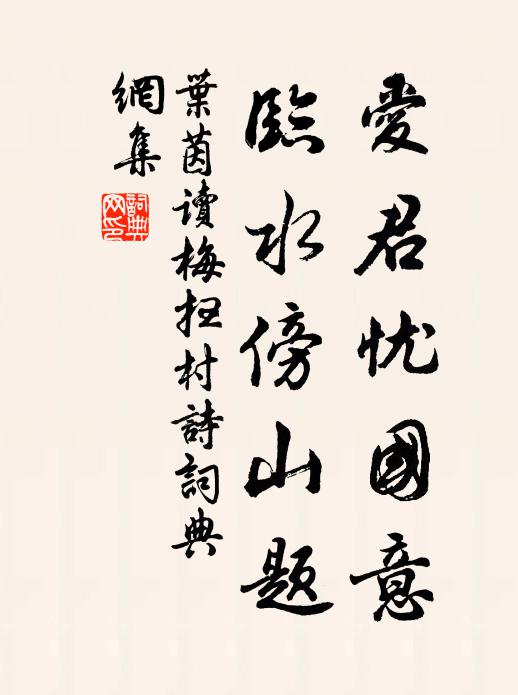 愛君忧國意
臨水傍山題
葉茵讀梅扭村詩詞典
網集
詞典網印